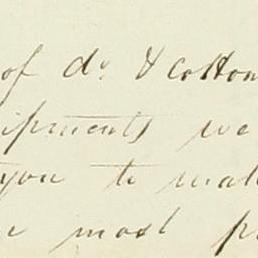 of do & Cotton
ipments we
you to mak
e most p